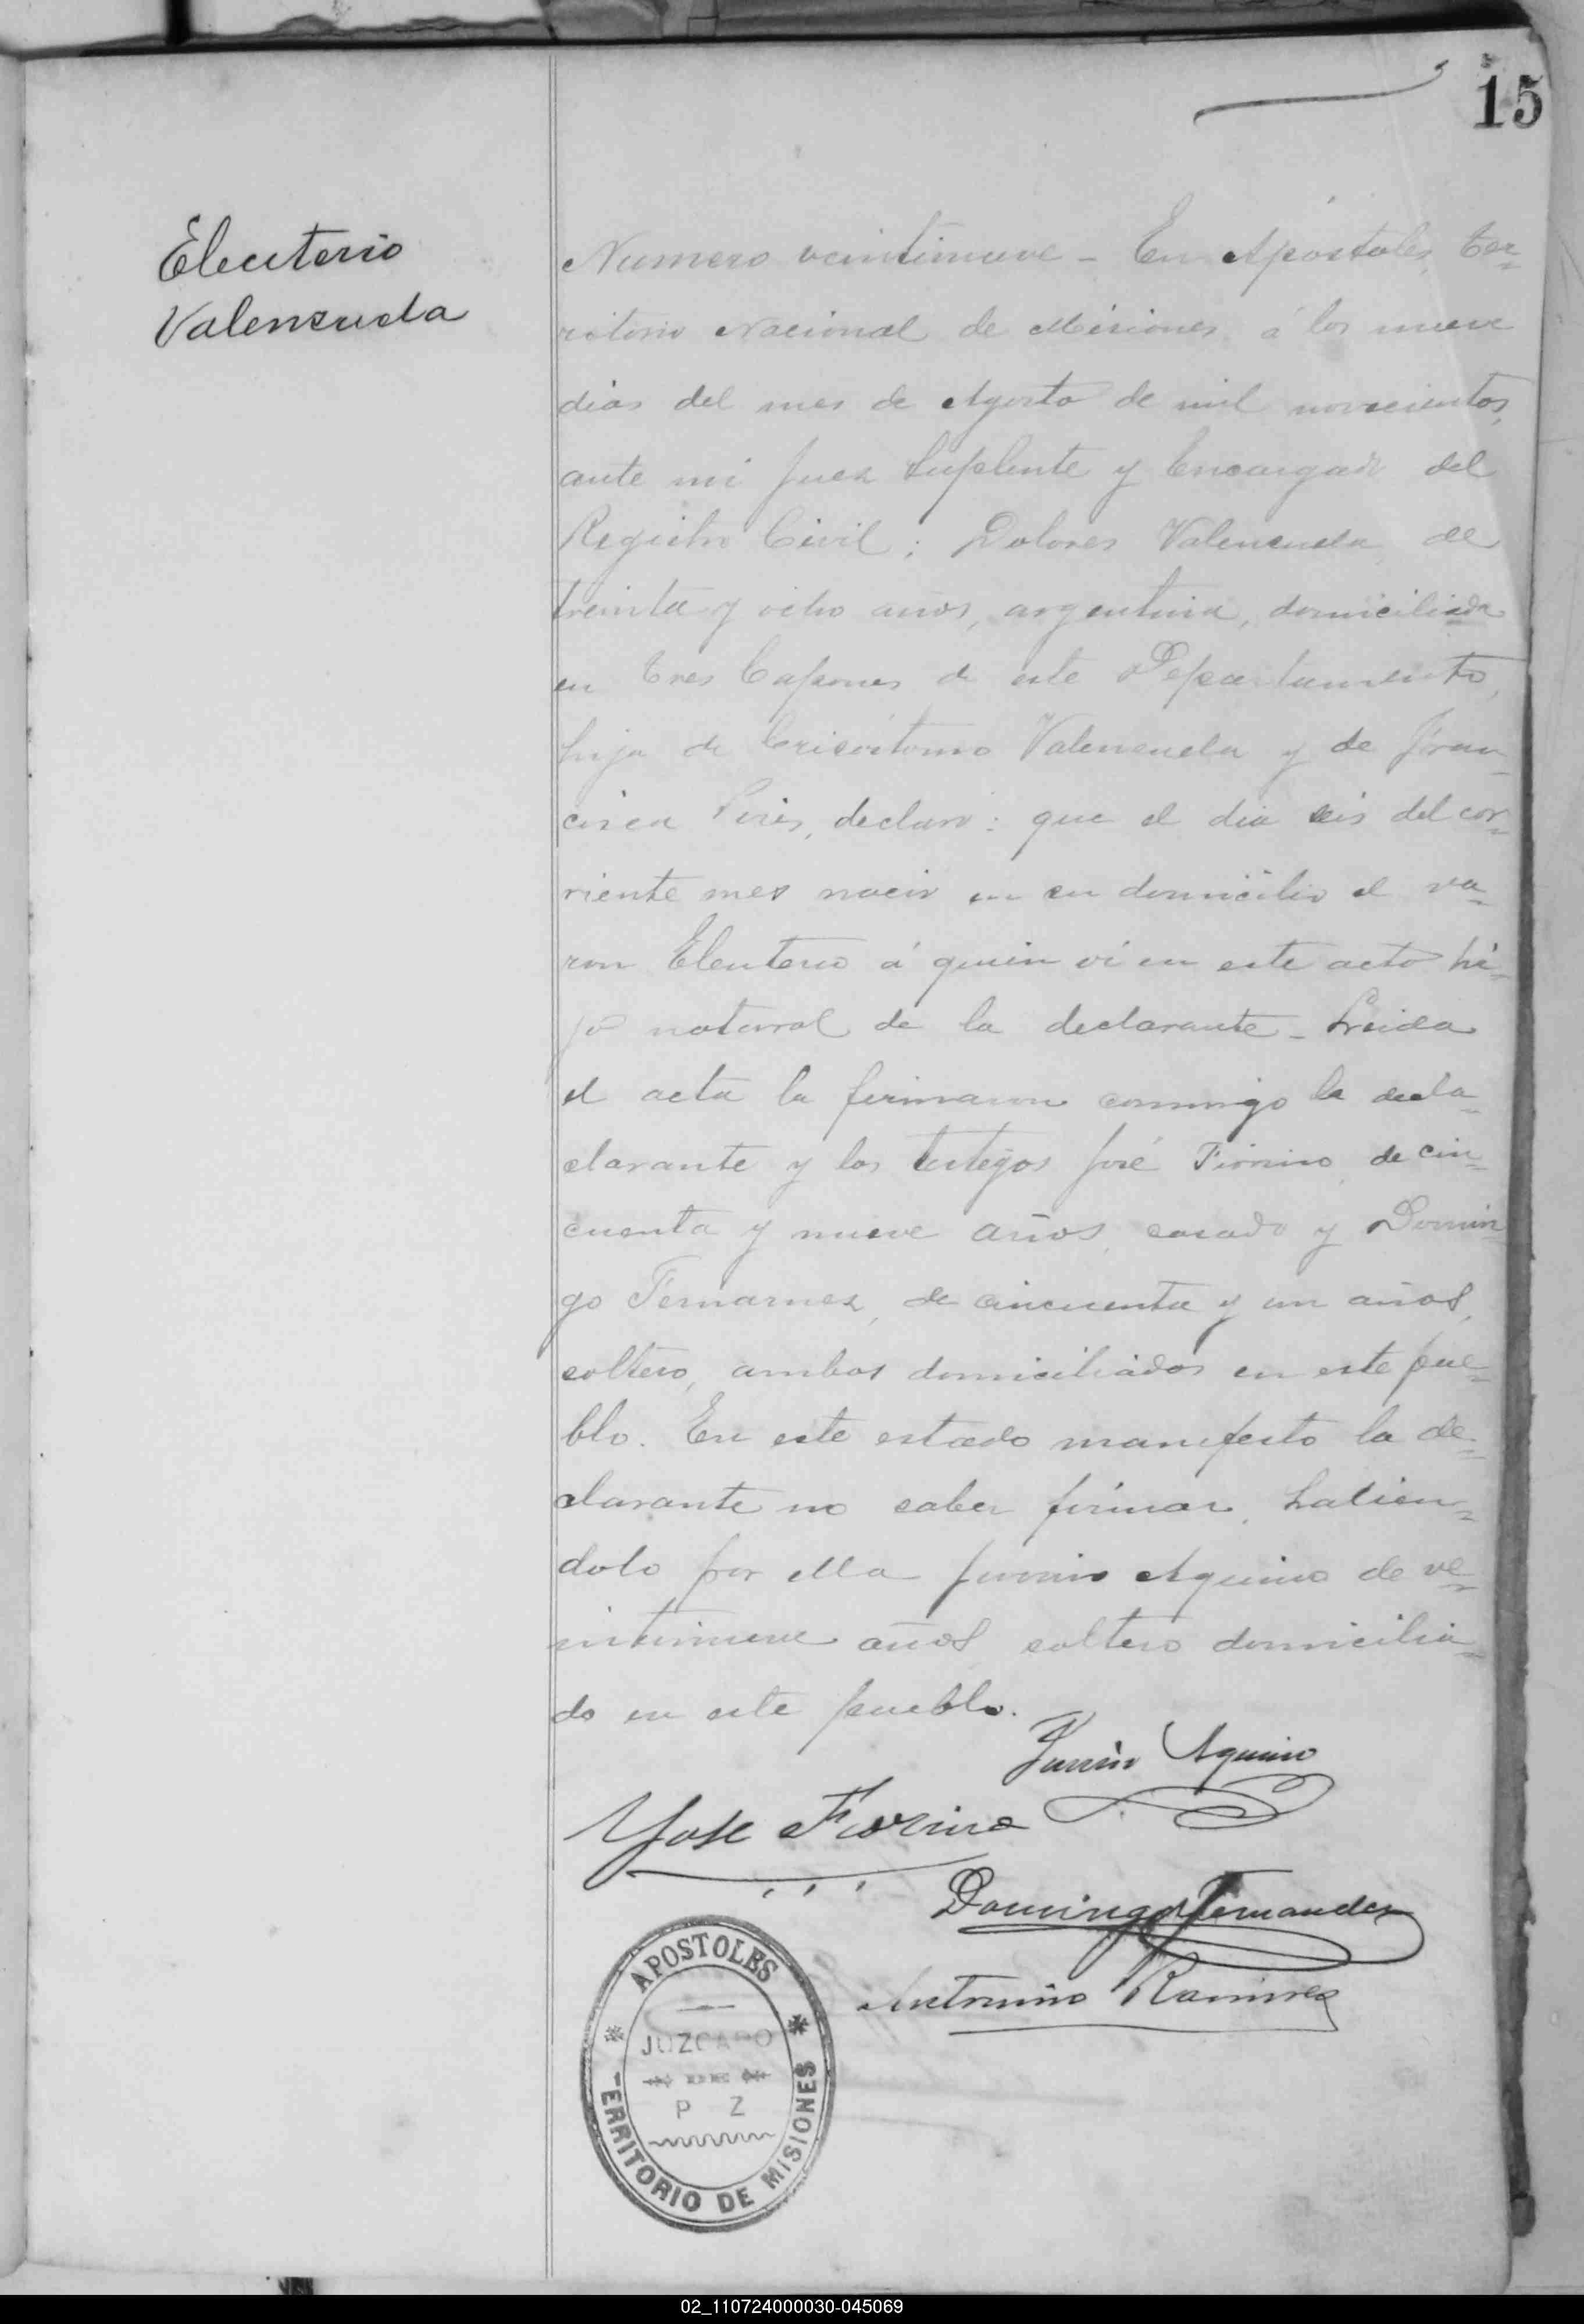 15
Eleuterio
Valenzuela
Numero veintinueve - En Apóstoles, ter-
ritorio Nacional de Misiones, á los nueve
dias del mes de Agosto de mil novecientos,
ante mi Juez Suplente y Encargado del
Registro Civil; Dolores Valenzuela, de
treinta y ocho años, argentina, domiciliada
en Tres Capones de este Departamento,
hija de Crisóstomo Valenzuela y de Fran-
cisca Piris, declaró: que el dia seis del cor-
riente mes nació en su domicilio el va-
ron Eleuterio á quien ví en este acto hi-
jo natural de la declarante - Leida
el acta la firmaron conmigo la decla-
clarante y los testigos José Fiorino, de cin-
cuenta y nueve años, casado y Domin
go Fernarnez, de cincuenta y un años,
soltero, ambos domiciliados en este pue-
blo. En este estado manifesto la de-
clarante no saber firmar, hacien-
dolo por ella Aquino de ve-
intinueve años, soltero domicilia-
do en este pueblo.
Aquino
Yose Fiorino
Domingo Fernandez
Antonino Ramirez
APOSTOLES
JUZGADO
DE
P Z
TERRITORIO DE MISIONES
02_110724000030-045069